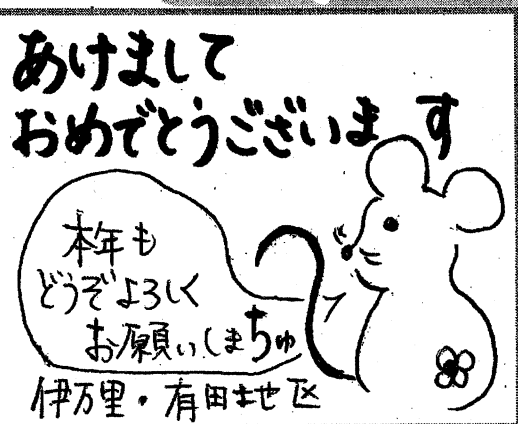 あけまして
おめでとうございます
本年も
どうぞよろしく
お願いしまちゅ
伊万里・有田地区